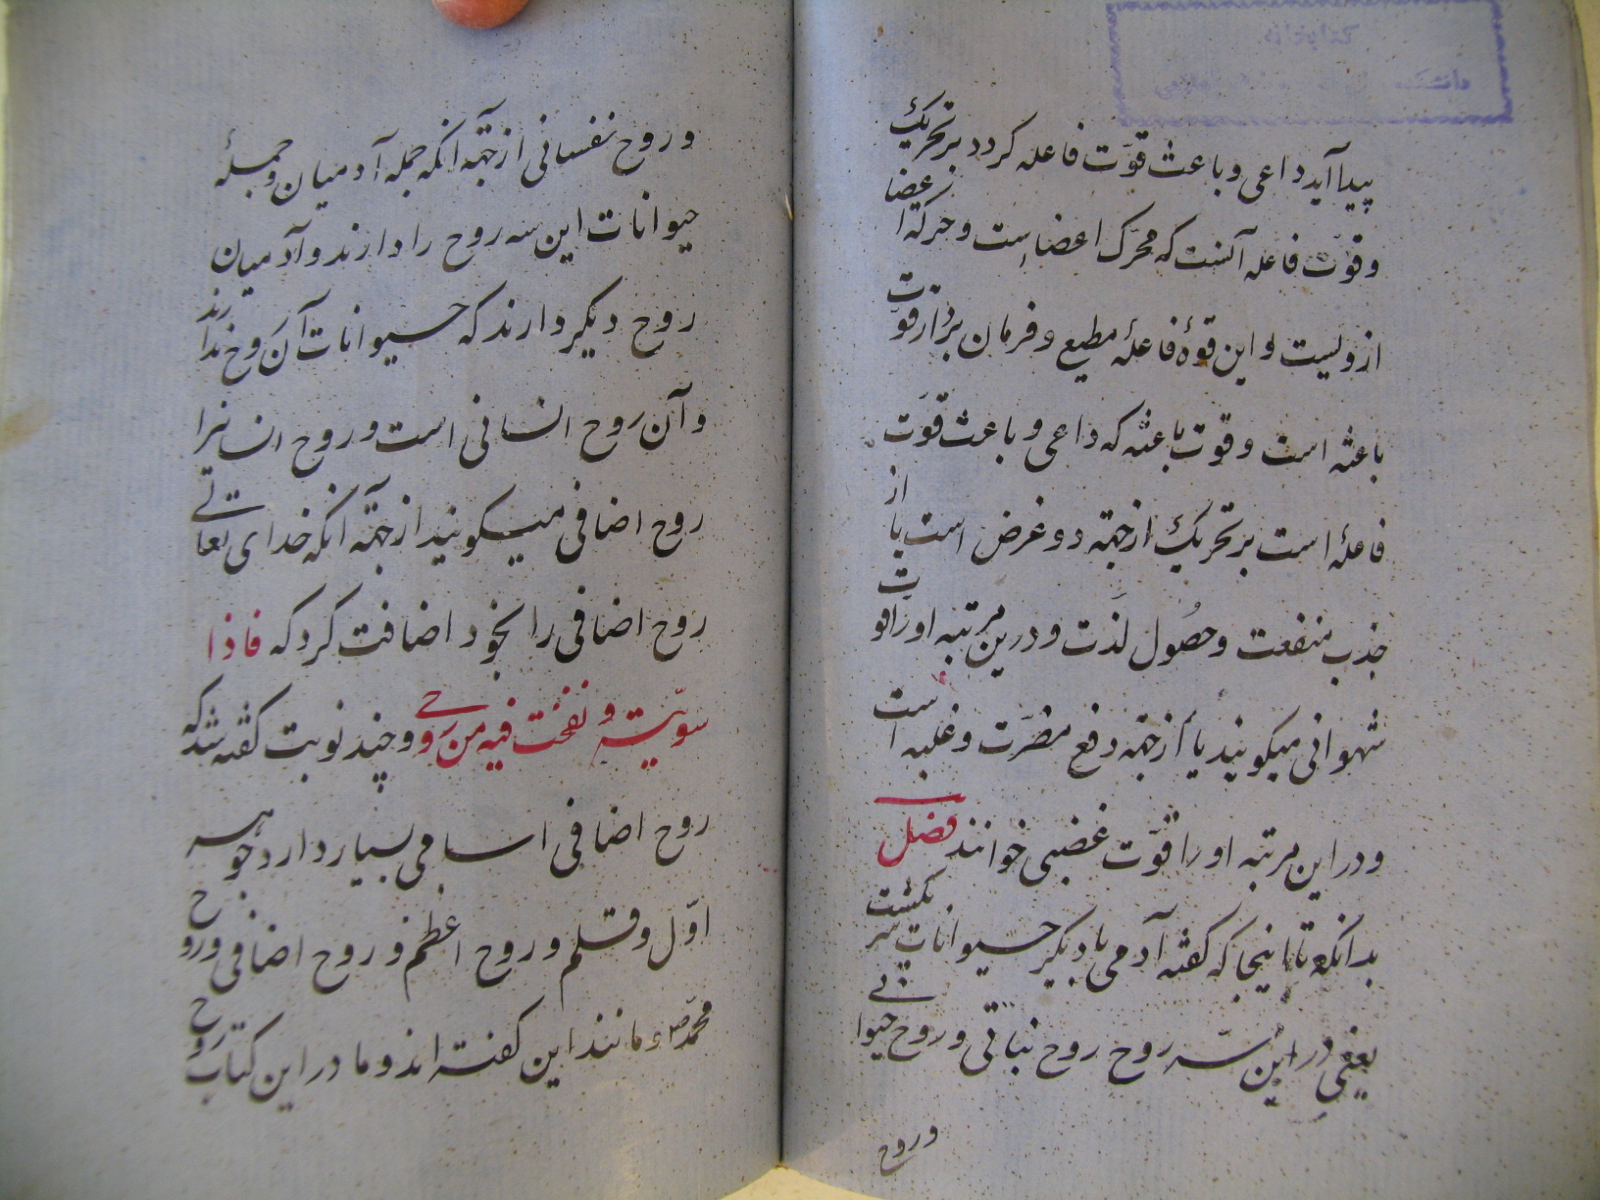 پیدا آید داعی و باعث قوّت فاعله کردد بر تحریک
و قوّت فاعله آنست که محرّک اعضا است و حرکة اعضا
از ویست و این قوۀ فاعلۀ مطیع و فرمان بردار قوّت
باعثه است و قوت باعثه که داعی و باعث قوّت
فاعلۀ است بر تحریک از جهة دو غرض است یا از
جذب منفعت و حصُول لذّت و درین مرتبه او را قوت
شهوانی میکویند یا از جهة دفع مضرّت و غلبه است
و در این مرتبه او را قوّت غضبی خوانند فصل
بدانکه تا اینجا که کفته آدمی با دیکر حیوانات شریکست
یعنی در این سّه روح روح نباتی و روح حیوانی
و روح
و روح نفسانی از جهة آنکه جمله آدمیان و جملۀ
حیوانات این سه روح را دارند و آدمیان
روح دیکر دارند که حیوانات آن روح ندارند
و آن روح انسانی است و روح انسانیرا
روح اضافی میکویند از جهة آنکه خدای تعالی
روح اضافی را بخود اضافت کرد که فاذا
سوّیته و نفخت فیه من روحی و چند نوبت کفته شد که
روح اضافی اسامی بسیار دارد جوهر
اوّل و قلم و روح اعظم و روح اضافی و روح
محمّد ص و مانند این کفته اند و ما در این کتاب روح